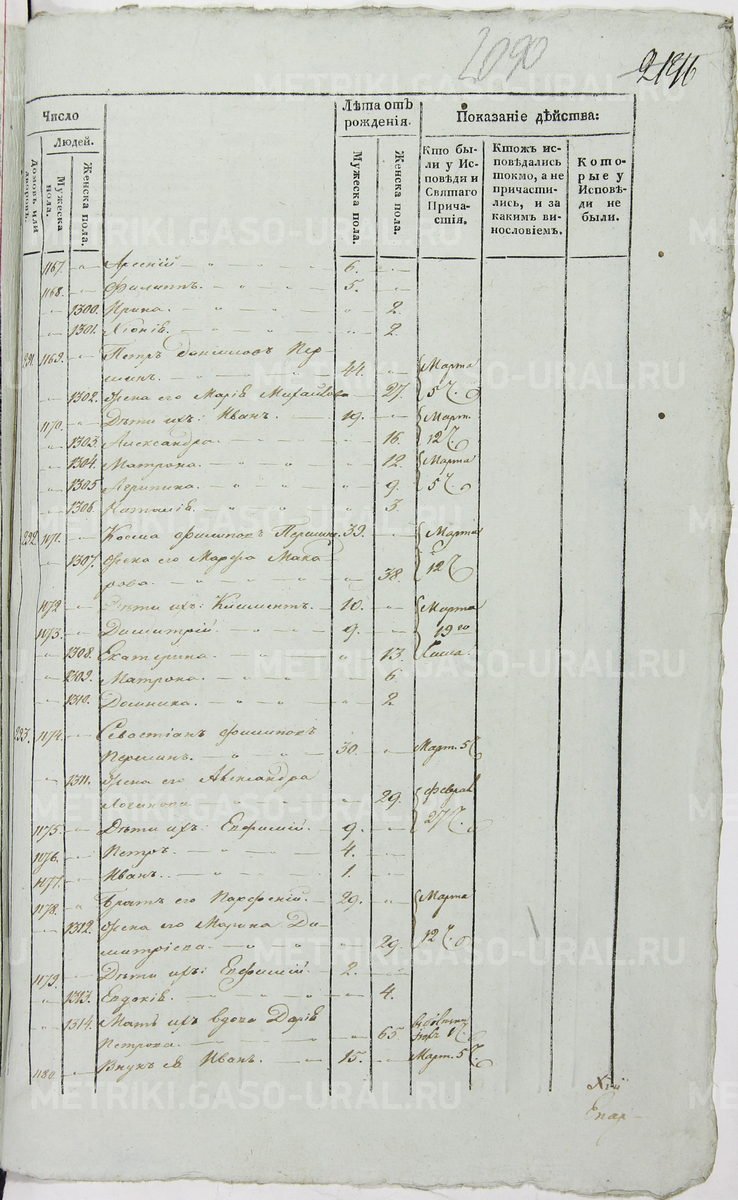 2090
2196
Число
Людей.
Домовъ или дворовъ.
Мужеска пола.
Женска пола.
Лѣта отъ рожденія.
Мужеска пола.
Женска пола.
Показаніе дѣйства:
Кто были у Исповѣди и Святаго Причастія.
Ктожъ исповѣдались токмо, а не причастились, и за какимъ винословіемъ.
Которые у Исповѣди не были.
1167. Арсеній 6.
1168. Филиппъ. 5.
1300. Ирина. 2.
1301. Хіонія. 2.
231. 1169. Петръ Даниловъ Пер
шинъ. 44. Марта
1302. Жена его Марія Михайлова 27. 5
1170. Дѣти ихъ: Иванъ. 19. Март.
1303. Александра. 16. 12
1304. Матрона. 12. Марта
1305 9. 5
1306. Наталія. 3.
232. 1171. Косма Филиповъ Першинъ. 39. Марта
1307. Жена его Марфа Мака
рова. 38. 12
1172 Дѣти ихъ: Климентъ. 10. Марта
1173. Димитрій. 9. 19го
1308. Екатерина. 13.
1309. Матрона. 6.
1310. Домника. 2
233. 1174. Севастіанъ Филиповъ
Першинъ. 30. Март. 5
1311. Жена его Александра
Логинова 29. Феврал
1175. Дѣти ихъ: Евфимій. 9. 27
1176. Петръ. 4.
1177. Иванъ. 1.
1178. Братъ его Парфеній. 29. Марта
1312. Жена его Марина Ди
митріева. 29. 12
1179. Дѣти ихъ: Евфимій. 2.
1313. Евдокія. 4.
1314. Мать ихъ вдова Дарія
Петрова. 65.
1180. Внукъ ея Иванъ. 15. Март. 5
METRIKI.GASO-URAL.RU